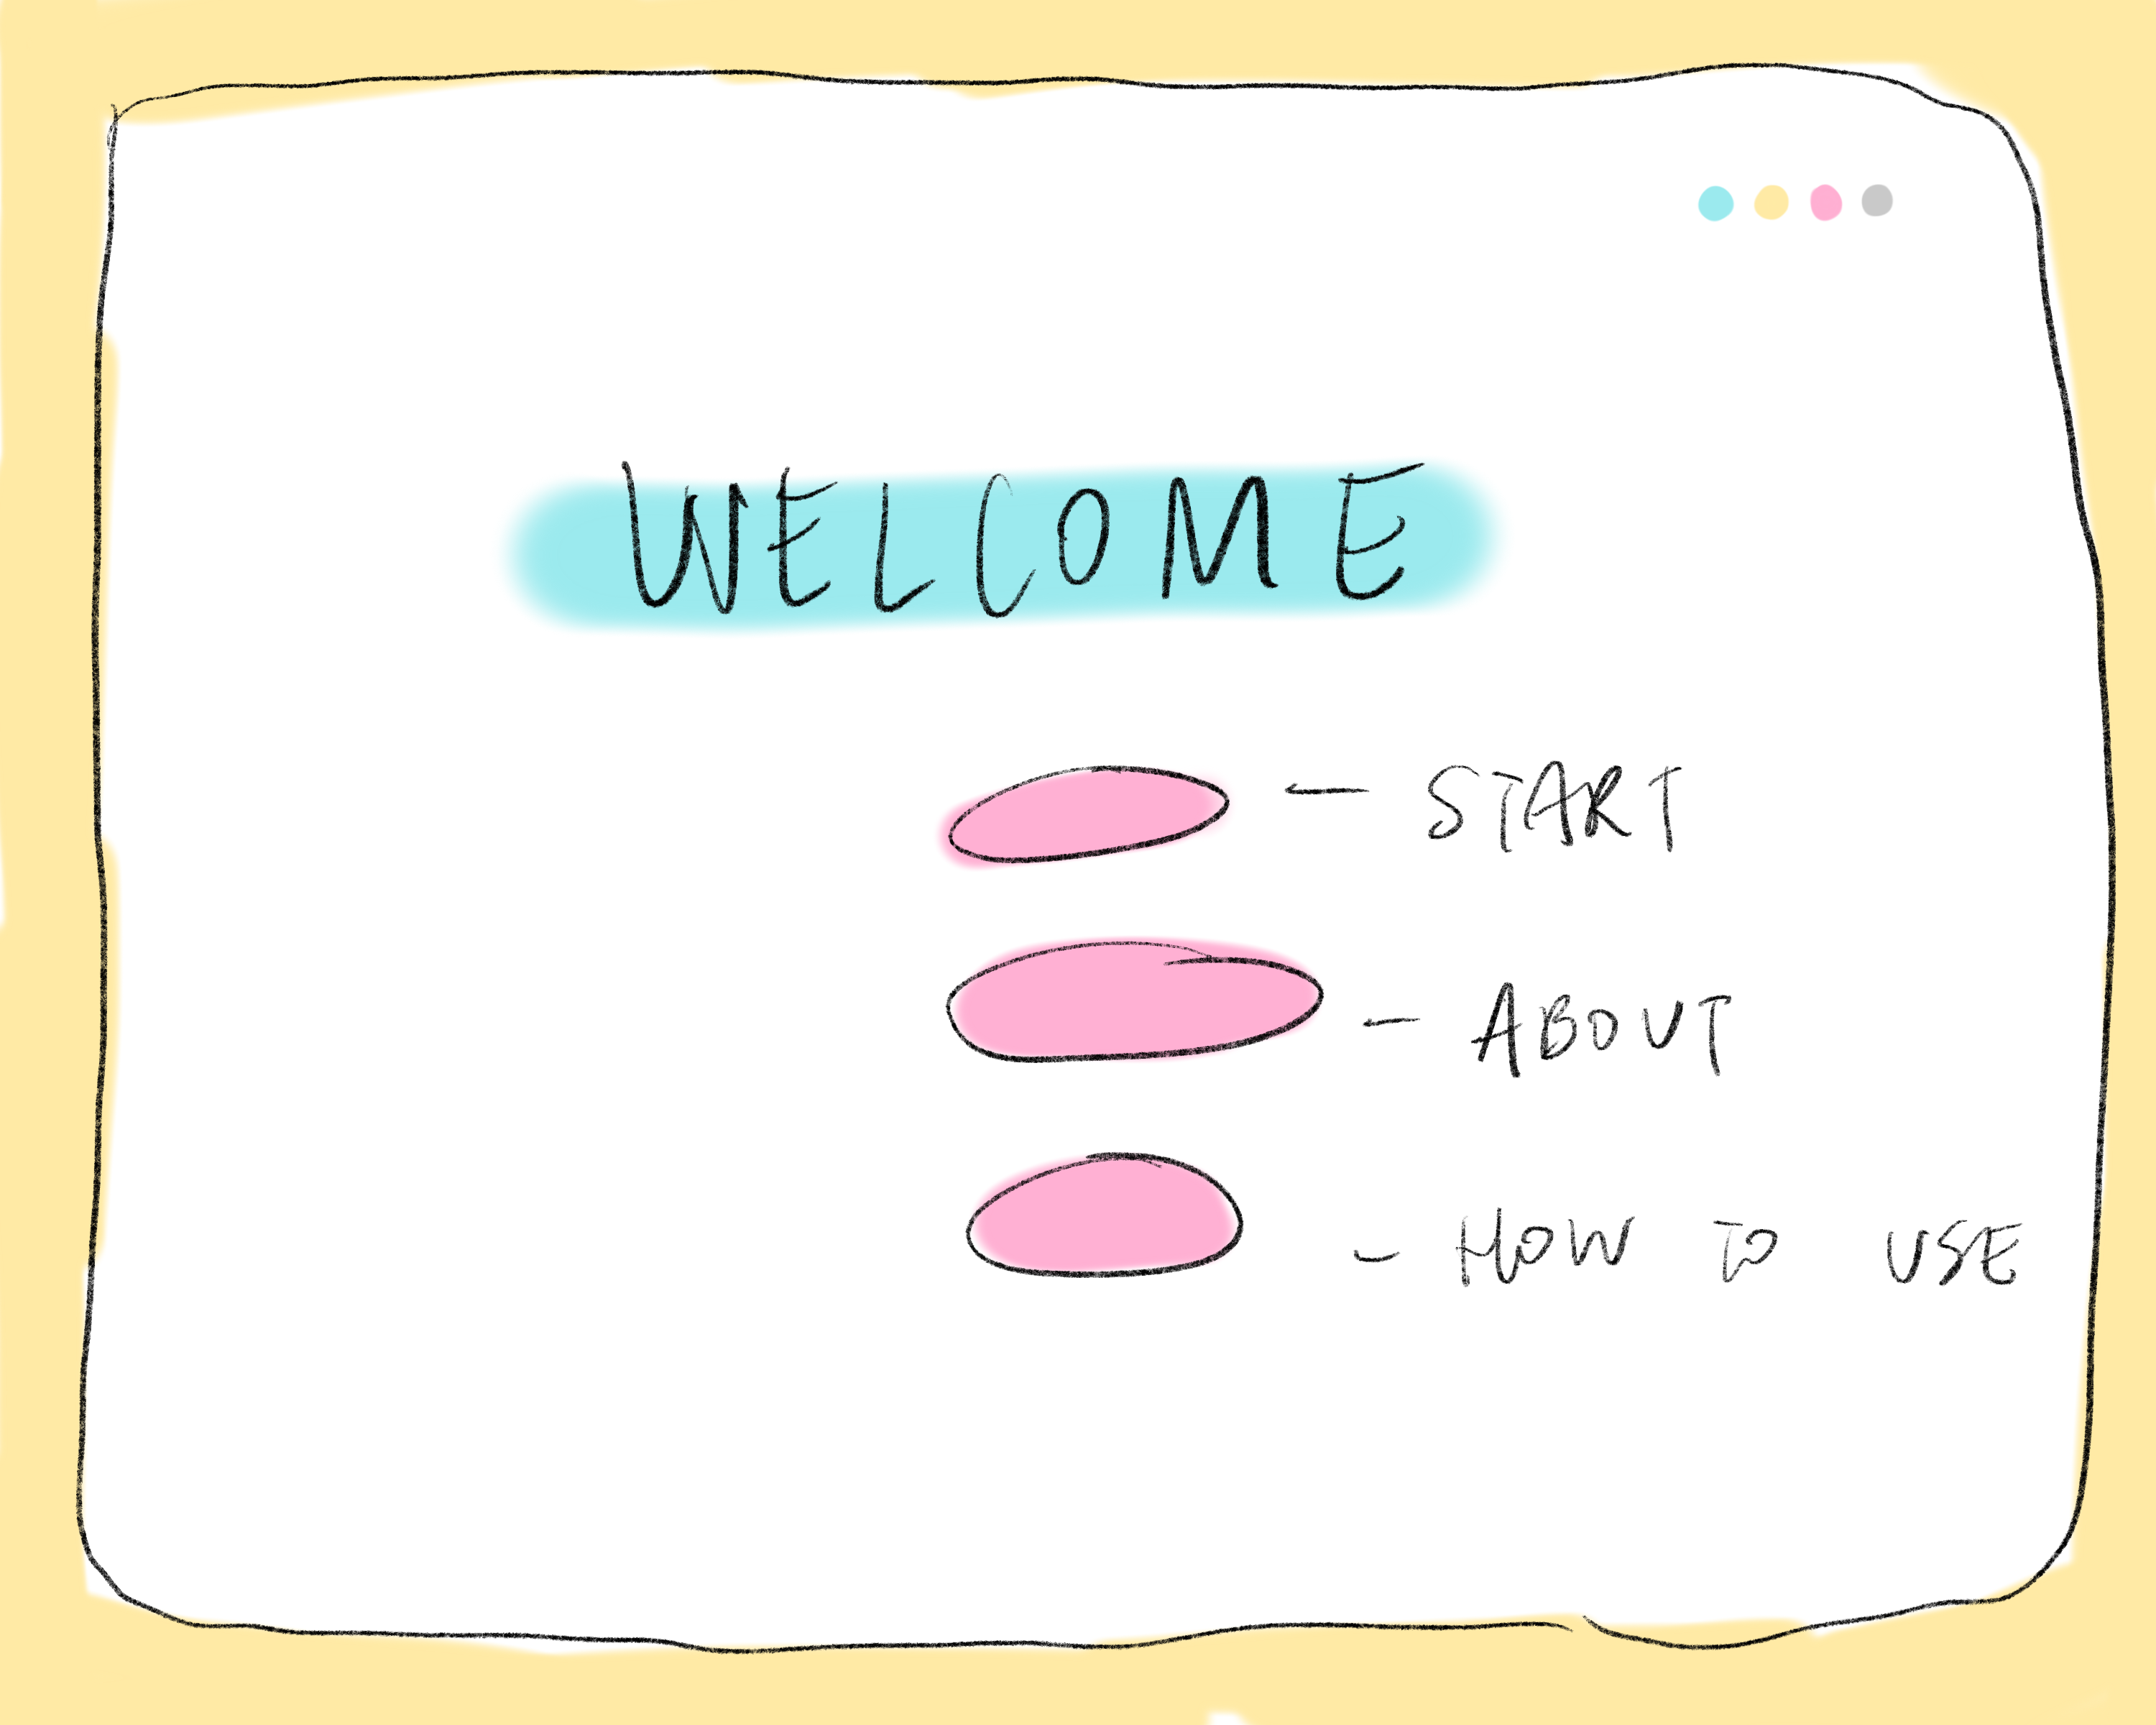 WELCOME
- START
- ABOUT
- HOW TO USE